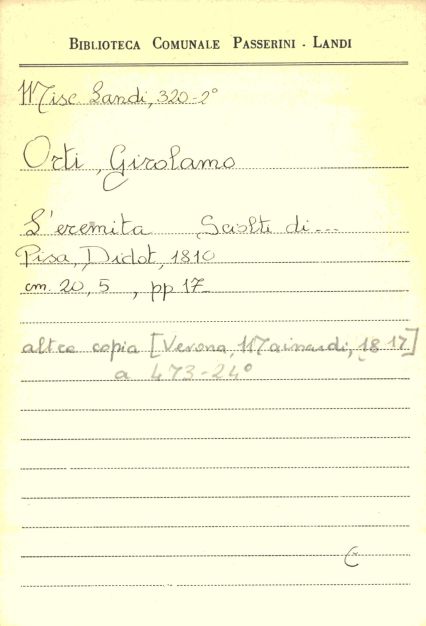 BIBLIOTECA COMUNALE PASSERINI - LANDI
Misc. Landi, 320-2°
Orti, Girolamo
L'eremita Sciolti di...
Pisa, Didot, 1810
cm. 20,5, pp 17
altra copia [Verona, Mainardi, 1817]
a 473-24°